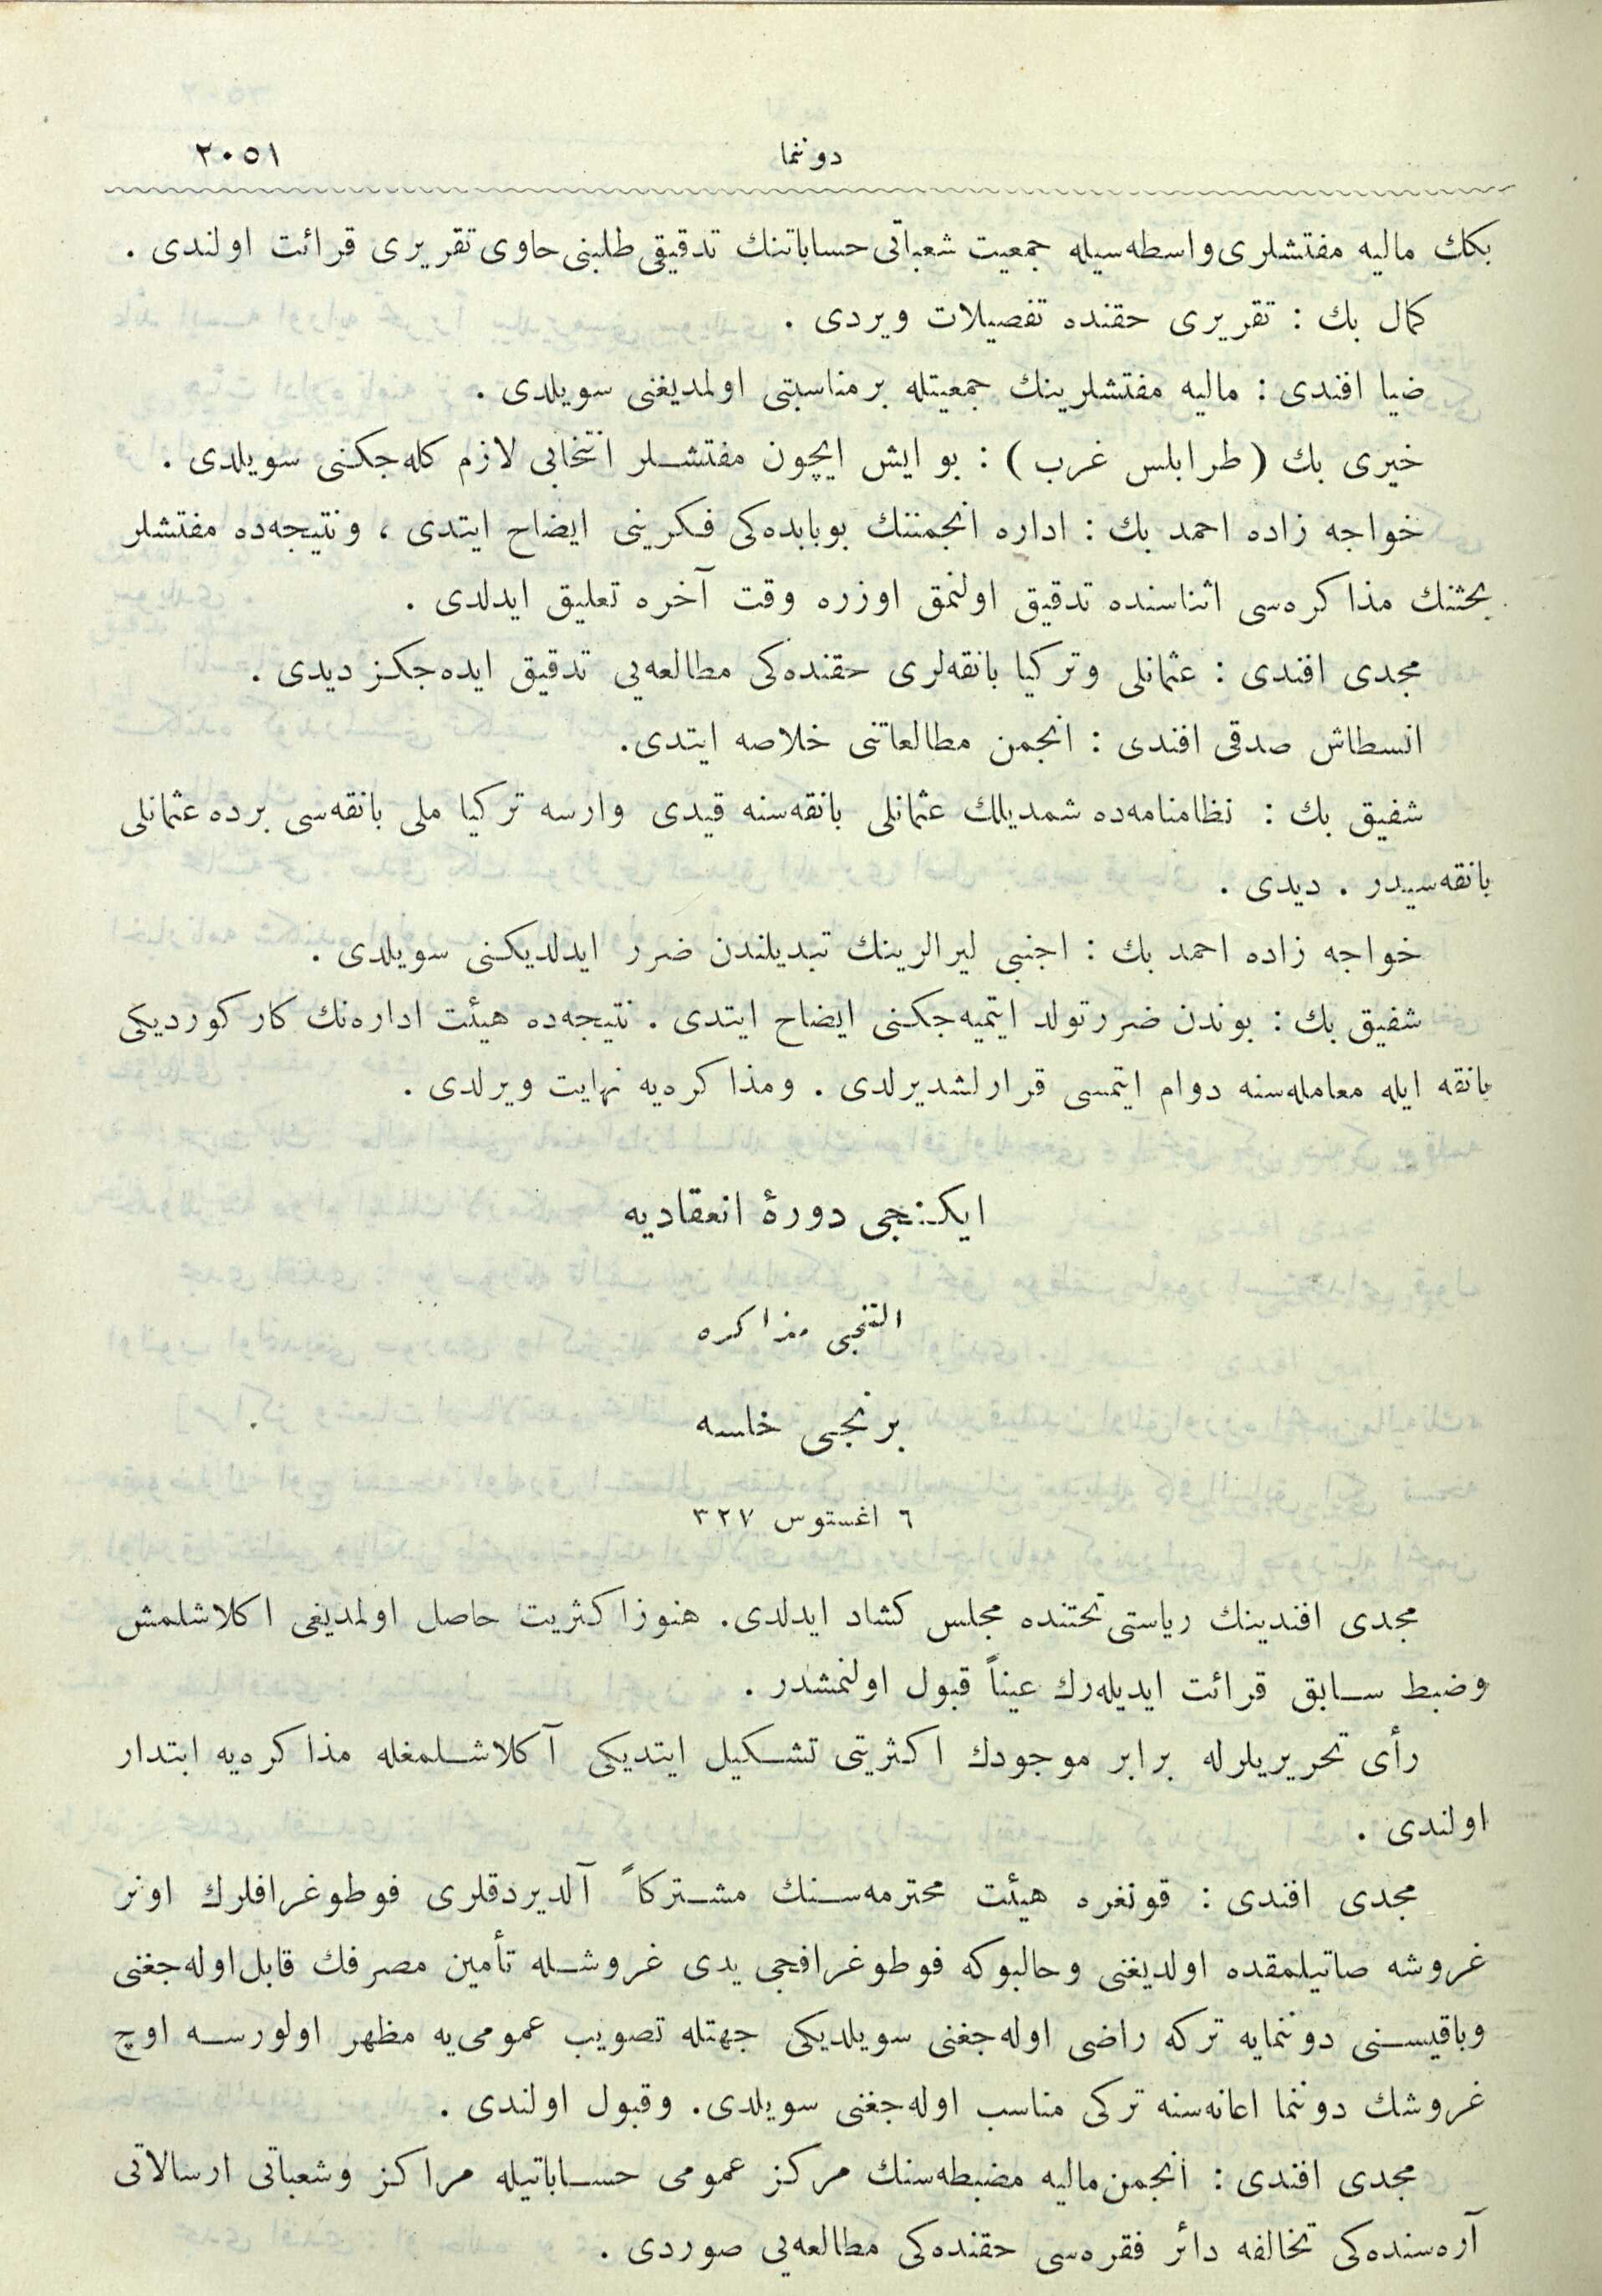 دوننما
٢٠٥١
بكك ماليه مفتشلرى واسطه‌سيله جمعيت شعباتى حساباتنك تدقيقى طلبنى حاوى تقريرى قرائت اولندى .
كمال بك : تقريرى حقنده تفصيلات ويردى .
ضيا افندى : ماليه مفتشلرينك جمعيتله بر مناسبتى اولمديغنى سويلدى .
خيرى بك (طرابلس غرب) : بو ايش ايچون مفتشلر انتخابى لازم كله‌جكنى سويلدى .
خواجه زاده احمد بك : اداره انجمننك بوبابده‌كى فكرينى ايضاح ايتدى ، ونتيجه‌ده مفتشلر
بحثنك مذاكره‌سى اثناسنده تدقيق اولنمق اوزره وقت آخره تعليق ايدلدى .
مجدى افندى : عثمانلى وتركيا بانقه‌لرى حقنده‌كى مطالعه‌يى تدقيق ايده‌جكز ديدى .
انسطاش صدقى افندى : انجمن مطالعاتنى خلاصه ايتدى.
شفيق بك : نظامنامه‌ده شمديلك عثمانلى بانقه‌سنه قيدى وارسه تركيا ملى بانقه‌سى برده عثمانلى
بانقه‌سيدر . ديدى .
خواجه زاده احمد بك : اجنبى ليرالرينك تبديلندن ضرر ايدلديكنى سويلدى .
شفيق بك : بوندن ضرر تولد ايتميه‌جكنى ايضاح ايتدى . نتيجه‌ده هيئت اداره‌نك كار كورديكى
بانقه ايله معامله‌سنه دوام ايتمسى قرارلشديرلدى . ومذاكره‌يه نهايت ويرلدى .
ايكنجى دورۀ انعقاديه
التنجى مذاكره
برنجى خلسه
٦ اغستوس ٣٢٧
مجدى افندينك رياستى تحتنده مجلس كشاد ايدلدى. هنوز اكثريت حاصل اولمديغى اكلاشلمش
وضبط سابق قرائت ايديله‌رك عيناً قبول اولنمشدر .
رأى تحريريلرله برابر موجودك اكثريتى تشكيل ايتديكى آكلاشلمغله مذاكره‌يه ابتدار
اولندى .
مجدى افندى : قونغره هيئت محترمه‌سنك مشتركاً آلديردقلرى فوطوغرافلرك اونر
غروشه صاتيلمقده اولديغنى وحالبوكه فوطوغرافجى يدى غروشله تأمين مصرفك قابل اوله‌جغنى
وباقيسنى دوننمايه تركه راضى اوله‌جغنى سويلديكى جهتله تصويب عمومى‌يه مظهر اولورسه اوچ
غروشك دوننما اعانه‌سنه تركى مناسب اوله‌جغنى سويلدى. وقبول اولندى .
مجدى افندى : انجمن ماليه مضبطه‌سنك مركز عمومى حساباتيله مراكز وشعباتى ارسالاتى
آره‌سنده‌كى تخالفه دائر فقره‌سى حقنده‌كى مطالعه‌يى صوردى .